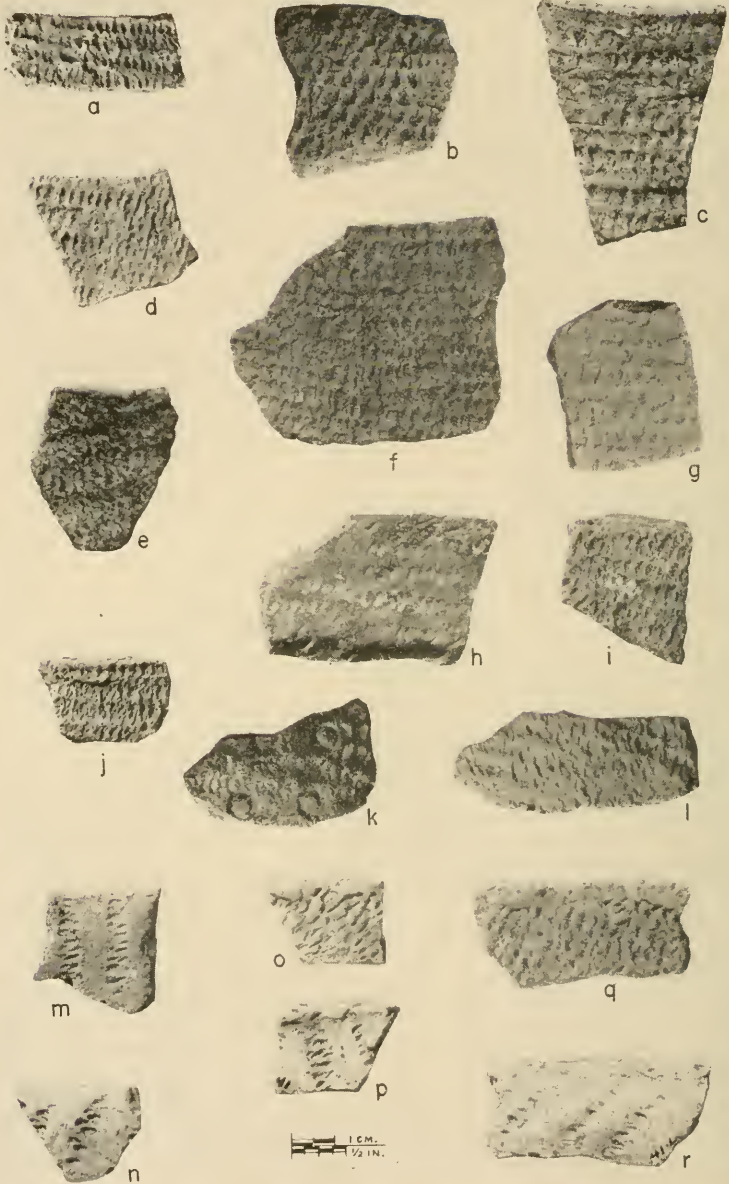 a
b
c
d
e
f
g
h
i
j
k
l
m
n
o
p
q
r
1 CM.
1/2 IN.